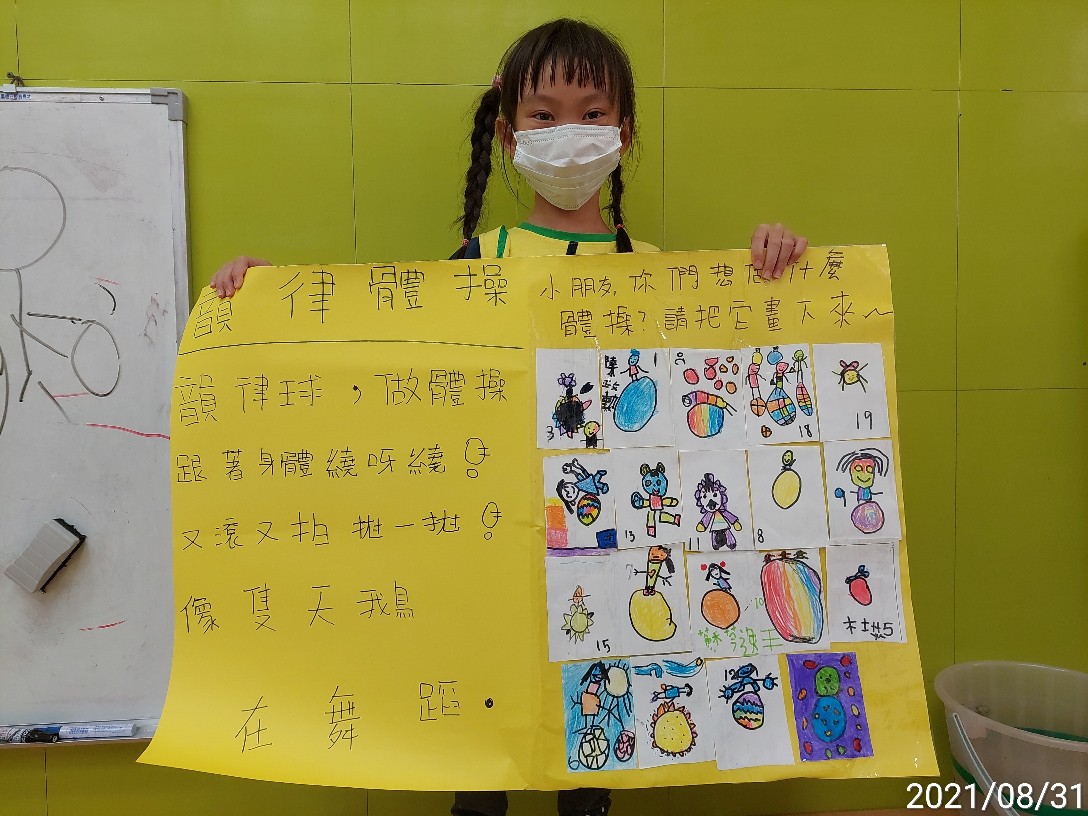 韻律體操
韻律球，做體操
跟著身體繞呀繞！
又滾又拍拋一拋！
像隻天鵝
在舞蹈。
小朋友你們想做什麼
體操？請把它畫下來～
3
1
18
19
13
11
8
7
10
15
5
6
12
2021/08/31